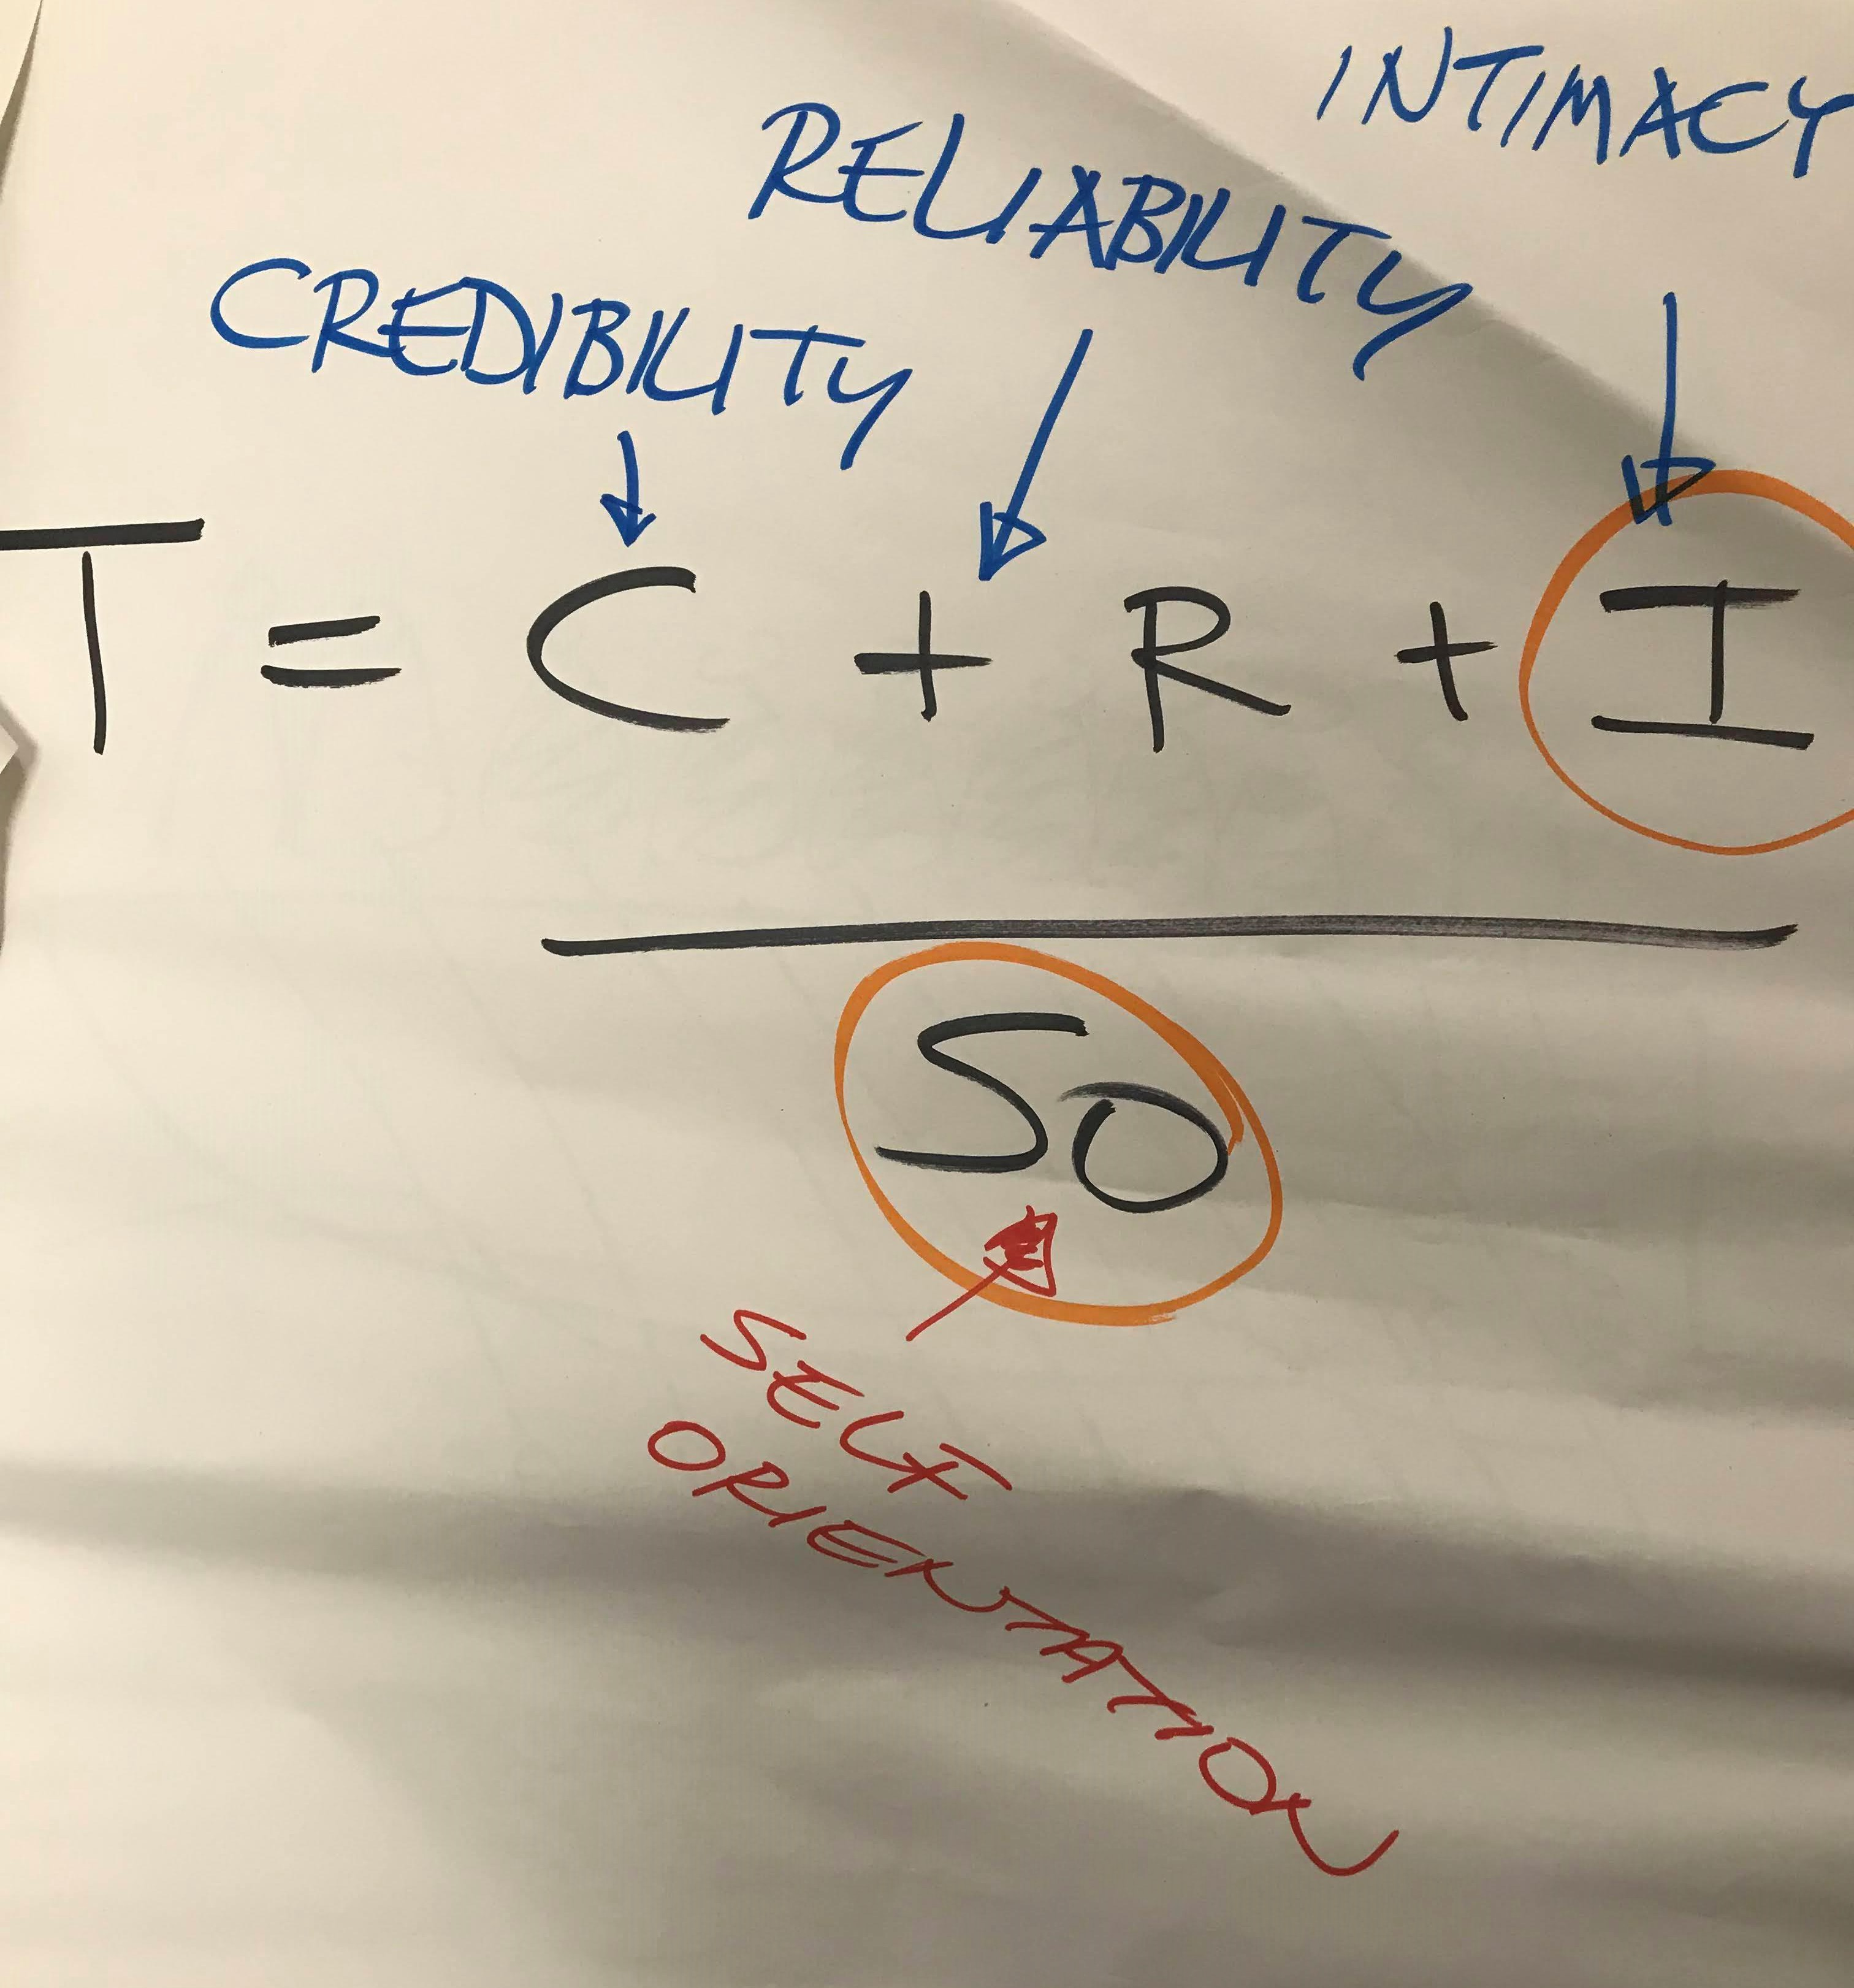 INTIMACY
RELIABILITY
CREDIBILITY
T = C + R + I
SO
SELF
ORIENTATION